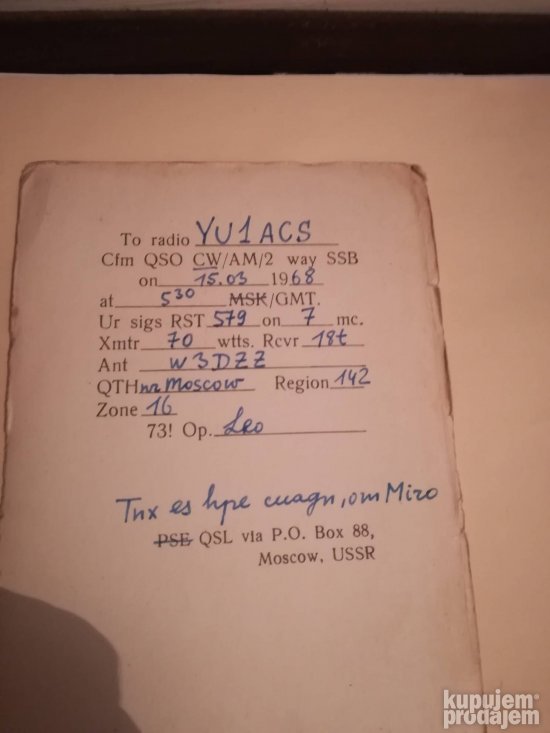 To radio YU1ACS
Cfm QSO CW/AM/2 way SSB
on 15.03 1968
at 5 30 MSK/GMT.
Ur sigs RST 579 on 7 mc.
Xmtr 70 wtts. Rcvr 18t
Ant W3DZZ
QTH nr Moscow Region 142
Zone 16
73! Op. Leo
Tnx es hpe cuagn, om Miro
PSE QSL via P.O. Box 88,
Moscow, USSR
kupujem
prodajem